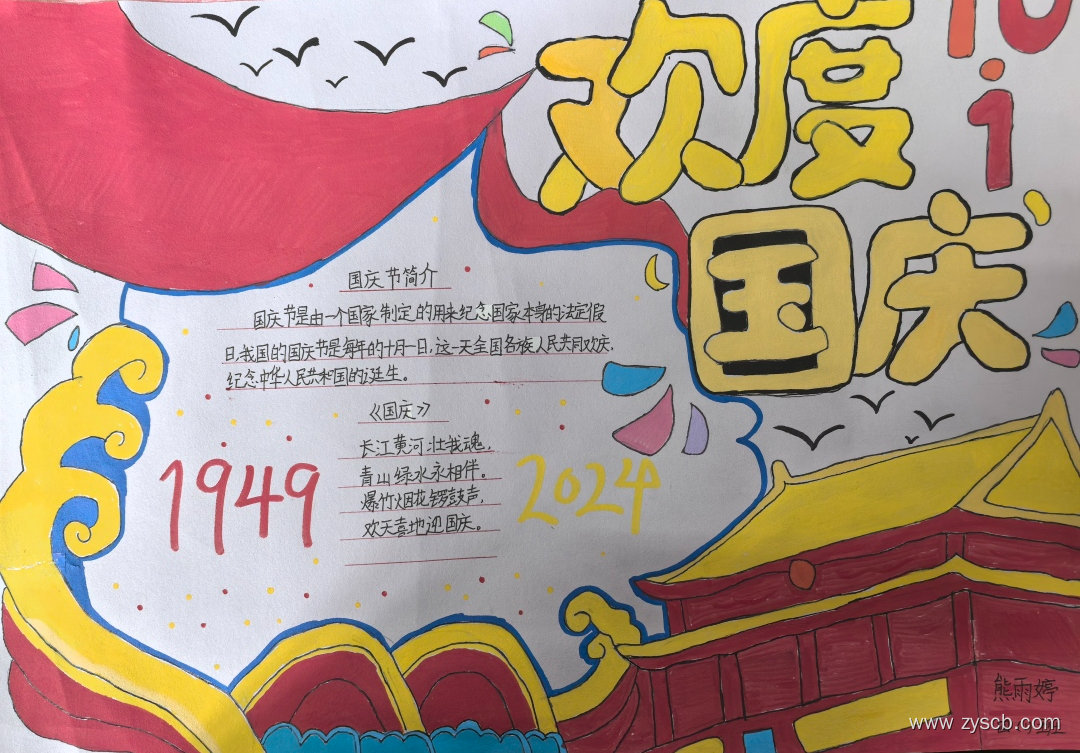 欢度
国庆
10
1
国庆节简介
国庆节是由一个国家制定的用来纪念国家本身的法定假
日,我国的国庆节是每年的十月一日,这一天全国各族人民共同欢庆,
纪念中华人民共和国的诞生。
《国庆》
长江黄河壮我魂,
青山绿水永相伴。
爆竹烟花锣鼓声,
欢天喜地迎国庆。
1949
2024
熊雨婷
www.zyscb.com